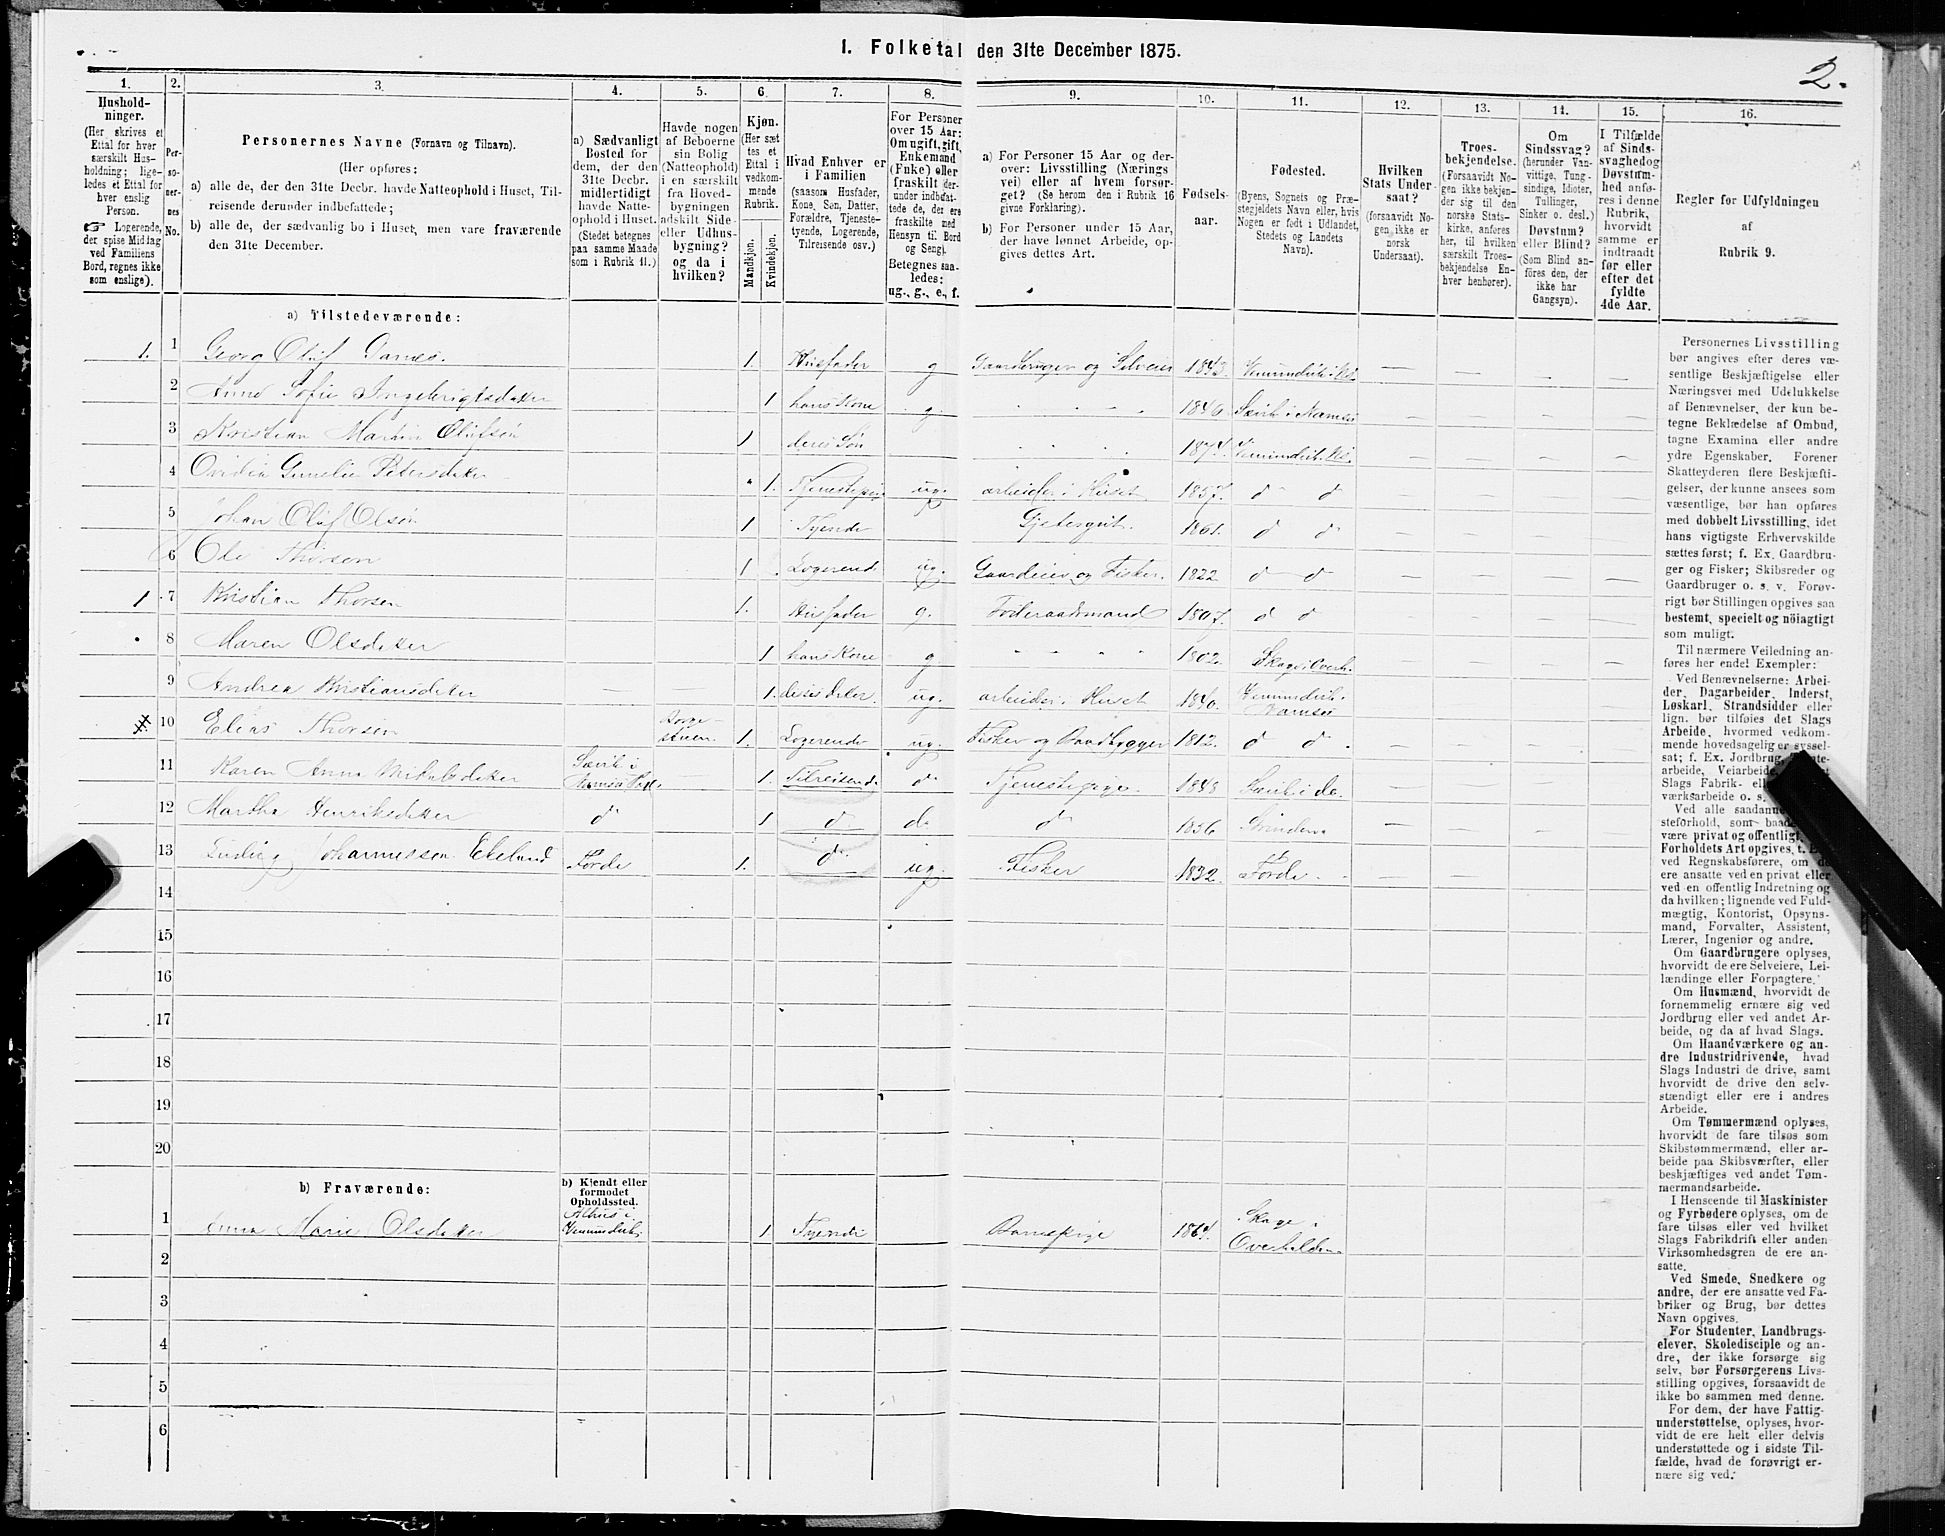 1. Folketal den 31te December 1875.
2.
1.
2.
3.
4.
5.
6.
7.
8.
9.
10.
11.
12.
13.
14.
15.
16.
Hushold-
ninger.
(Her skrives et
Ettal for hver
særskilt Hus-
holdning; lige-
ledes et Ettal for
hver enslig
Person.
☞ Logerende,
der spise Middag
ved Familiens
Bord, regnes ikke
som enslige).
Per-
so-
ner-
nes
No.
Personernes Navne (Fornavn og Tilnavn).
(Her opføres:
a) alle de, der den 31te Decbr. havde Natteophold i Huset, Til-
reisende derunder indbefattede;
b) alle de, der sædvanlig bo i Huset, men vare fraværende
den 31te December.
a) Sædvanligt
Bosted for
dem, der den
31te Decbr.
midlertidigt
havde Natte-
ophold i Huset.
(Stedet betegnes
paa samme Maade
som i Rubrik 11.)
Havde nogen
af Beboerne
sin Bolig
(Natteophold)
i en særskilt
fra Hoved-
bygningen
adskilt Side-
eller Udhus-
bygning?
og da i
hvilken?
Kjøn.
(Her sæt
tes et
Ettal i
vedkom-
mende
Rubrik.
Mandkjøn.
Kvindekjøn.
Hvad Enhver er
i Familien
(saasom Husfader,
Kone, Søn, Datter,
Forældre, Tjeneste-
tyende, Logerende,
Tilreisende osv.)
For Personer
over 15 Aar:
Om ugift, gift,
Enkemand
(Enke) eller
fraskilt der-
under indbefat-
tede de, der ere
fraskilte med
Hensyn til Bord
og Seng).
Betegnes saa-
ledes:
ug., g., e., f.
a) For Personer 15 Aar og der-
over: Livsstilling (Nærings
vei) eller af hvem forsør-
get? (Se herom den i Rubrik 16
givne Forklaring).
b) For Personer under 15 Aar,
der have lønnet Arbeide, op-
gives dettes Art.
Fødsels-
aar.
Fødested.
(Byens, Sognets og Præ-
stegjeldets Navn eller, hvis
Nogen er født i Udlandet,
Stedets og Landets
Navn).
Hvilken
Stats Under-
saat?
(forsaavidt No-
gen ikke er
norsk
Undersaat).
Troes-
bekjendelse.
(Forsaavidt No-
gen ikke bekjen-
der sig til den
norske Stats-
kirke, anføres
her, til hvilken
særskilt Troes-
bekjendelse En-
hver henhører).
Om
Sindssvag?
(herunder Van-
vittige, Tung-
sindige, Idioter,
Tullinger,
Sinker o. desl.)
Døvstum?
eller Blind?
(Som Blind an-
føres den, der
ikke har
Gangsyn).
I Tilfælde
af Sinds-
svaghed og
Døvstum-
hed anfø-
res i denne
Rubrik,
hvorvidt
samme er
indtraadt
før eller
efter det
fyldte
4de Aar.
Regler for Udfyldningen
af
Rubrik 9.
a) Tilstedeværende:
1. 1 Georg Oluf 1. Husfader g Gaardbruger og Selveier 1843.
2 Anna Sofie Ingebrigtsdatter 1 hans Kone g. 1846.
3 Kristian Martin Olufsen 1 deres Søn
4 Petersdatter 1. Tjenestepige ug. arbeider i Huset 1857. d d
5 Johan Oluf Olsen 1 Tyende Gjetergut. 1861. d d
6 Ole Thorsen 1 Logerende ug. Gaardeier og Fisker. 1822 d d
1 7 Kristian Thorsen 1. Husfader g. Føderaadsmand 1807. d d
8 Maren Olsdatter 1 hans Kone g 1802.
9 Andrea Kristiansdatter 1. deres datter ug. arbeider i Huset 1840.
10 Elias Thorsen Borge-
stuen 1. Logerende ug. Fisker og Baadbygger 1812. d d
11 Karen Anna 1. Tilreisende d Tjenestepige 1848
12 Martha Henriksdatter d 1 d d. d 1856
13 Ludvig Johannessen Ekelund Førde 1. d ug. Fisker 1832. Førde
14
15
16
17
18
19
20
b) Fraværende:
b) Kjendt eller
formodet
Opholdssted.
1 Anna Marie Olsdatter 1 Tyende Barnepige 1864. Skage i
Overhalden
2
3
4
5
6
Personernes Livsstilling
bør angives efter deres væ-
sentlige Beskjæftigelse eller
Næringsvei med Udelukkelse
af Benævnelser, der kun be-
tegne Beklædelse af Ombud,
tagne Examina eller andre
ydre Egenskaber. Forener
Skatteyderen flere Beskjæfti-
gelser, der kunne ansees som
væsentlige, bør han opføres
med dobbelt Livsstilling, idet
hans vigtigste Erhvervskilde
sættes først; f. Ex. Gaardbru-
ger og Fisker; Skibsreder og
Gaardbruger o. s. v. Forøv-
rigt bør Stillingen opgives saa
bestemt, specielt og nöiagtigt
som muligt.
Til nærmere Veiledning an-
føres her endel Exempler:
Ved Benævnelserne: Arbei-
der, Dagarbeider, Inderst,
Løskarl, Strandsidder eller
lign. bør tilføies det Slags
Arbeide, hvormed vedkom-
mende hovedsagelig er syssel-
sat; f. Ex. Jordbrug,
arbeide, Veiarbeide,
Slags Fabrik-
værksarbeide o. s.
Ved alle saadanne
steforhold, som
være privat og offentligt,
Forholdets Art opgives,
ved Regnskabsførere, om de
ere ansatte ved en privat eller
ved en offentlig Indretning og
da hvilken; lignende ved Fuld-
mægtig, Kontorist, Opsyns-
mand, Forvalter, Assistent,
Lærer, Ingeniør og andre.
Om Gaardbrugere oplyses,
hvorvidt de ere Selveiere, Lei-
lændinge eller Forpagtere.
Om Husmænd, hvorvidt de
fornemmelig ernære sig ved
Jordbrug eller ved andet Ar-
beide, og da af hvad Slags.
Om Haandværkere og an-
dre Industridrivende, hvad
Slags Industri de drive, samt
hvorvidt de drive den selv-
stændigt eller ere i andres
Arbeide.
Om Tømmermænd oplyses,
hvorvidt de fare tilsøs som
Skibstømmermænd, eller ar-
beide paa Skibsværfter, eller
beskjæftiges ved andet Tøm-
mermandsarbeide.
I Henseende til Maskinister
og Fyrbødere oplyses, om de
fare tilsøs eller ved hvilket
Slags Fabrikdrift eller anden
Virksomhedsgren de ere an-
satte.
Ved Smede, Snedkere og
andre, der ere ansatte ved Fa-
briker og Brug, bør dettes
Navn opgives.
For Studenter, Landbrugs-
elever, Skoledisciple og an-
dre, der ikke forsørge sig
selv, bør Forsørgerens Livs-
stilling opgives, forsaavidt de
ikke bo sammen med denne.
For dem, der have Fattig-
understøttelse, oplyses, hvor-
vidt de ere helt eller delvis
understøttede og i sidste Til-
fælde, hvad de forøvrigt er-
nære sig ved.